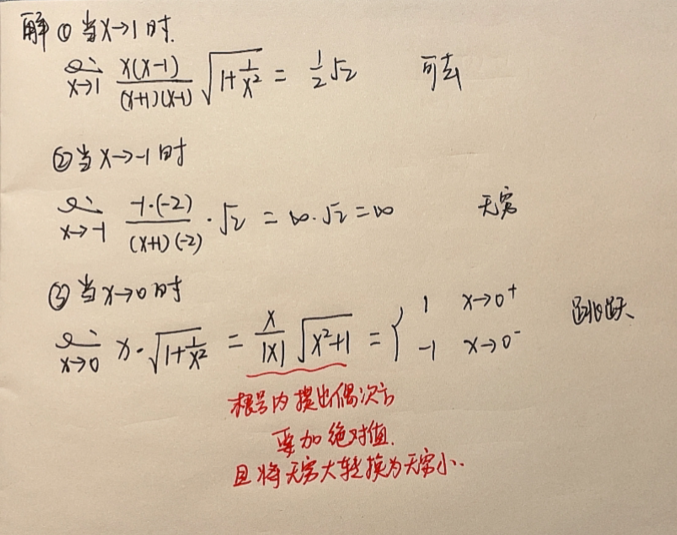 解 ① 当x→1时.
lim x→1 x(x-1)/(x+1)(x-1) √(1+1/x²) = 1/2 √2 可去
② 当x→-1时
lim x→-1 -1·(-2)/(x+1)(-2) · √2 = ∞·√2 = ∞ 无穷
③ 当x→0时
lim x→0 x·√(1+1/x²) = x/|x| √(x²+1) = { 1 x→0⁺ -1 x→0⁻ 跳跃
根号内提出偶次方
要加绝对值.
且将无穷大转换为无穷小.